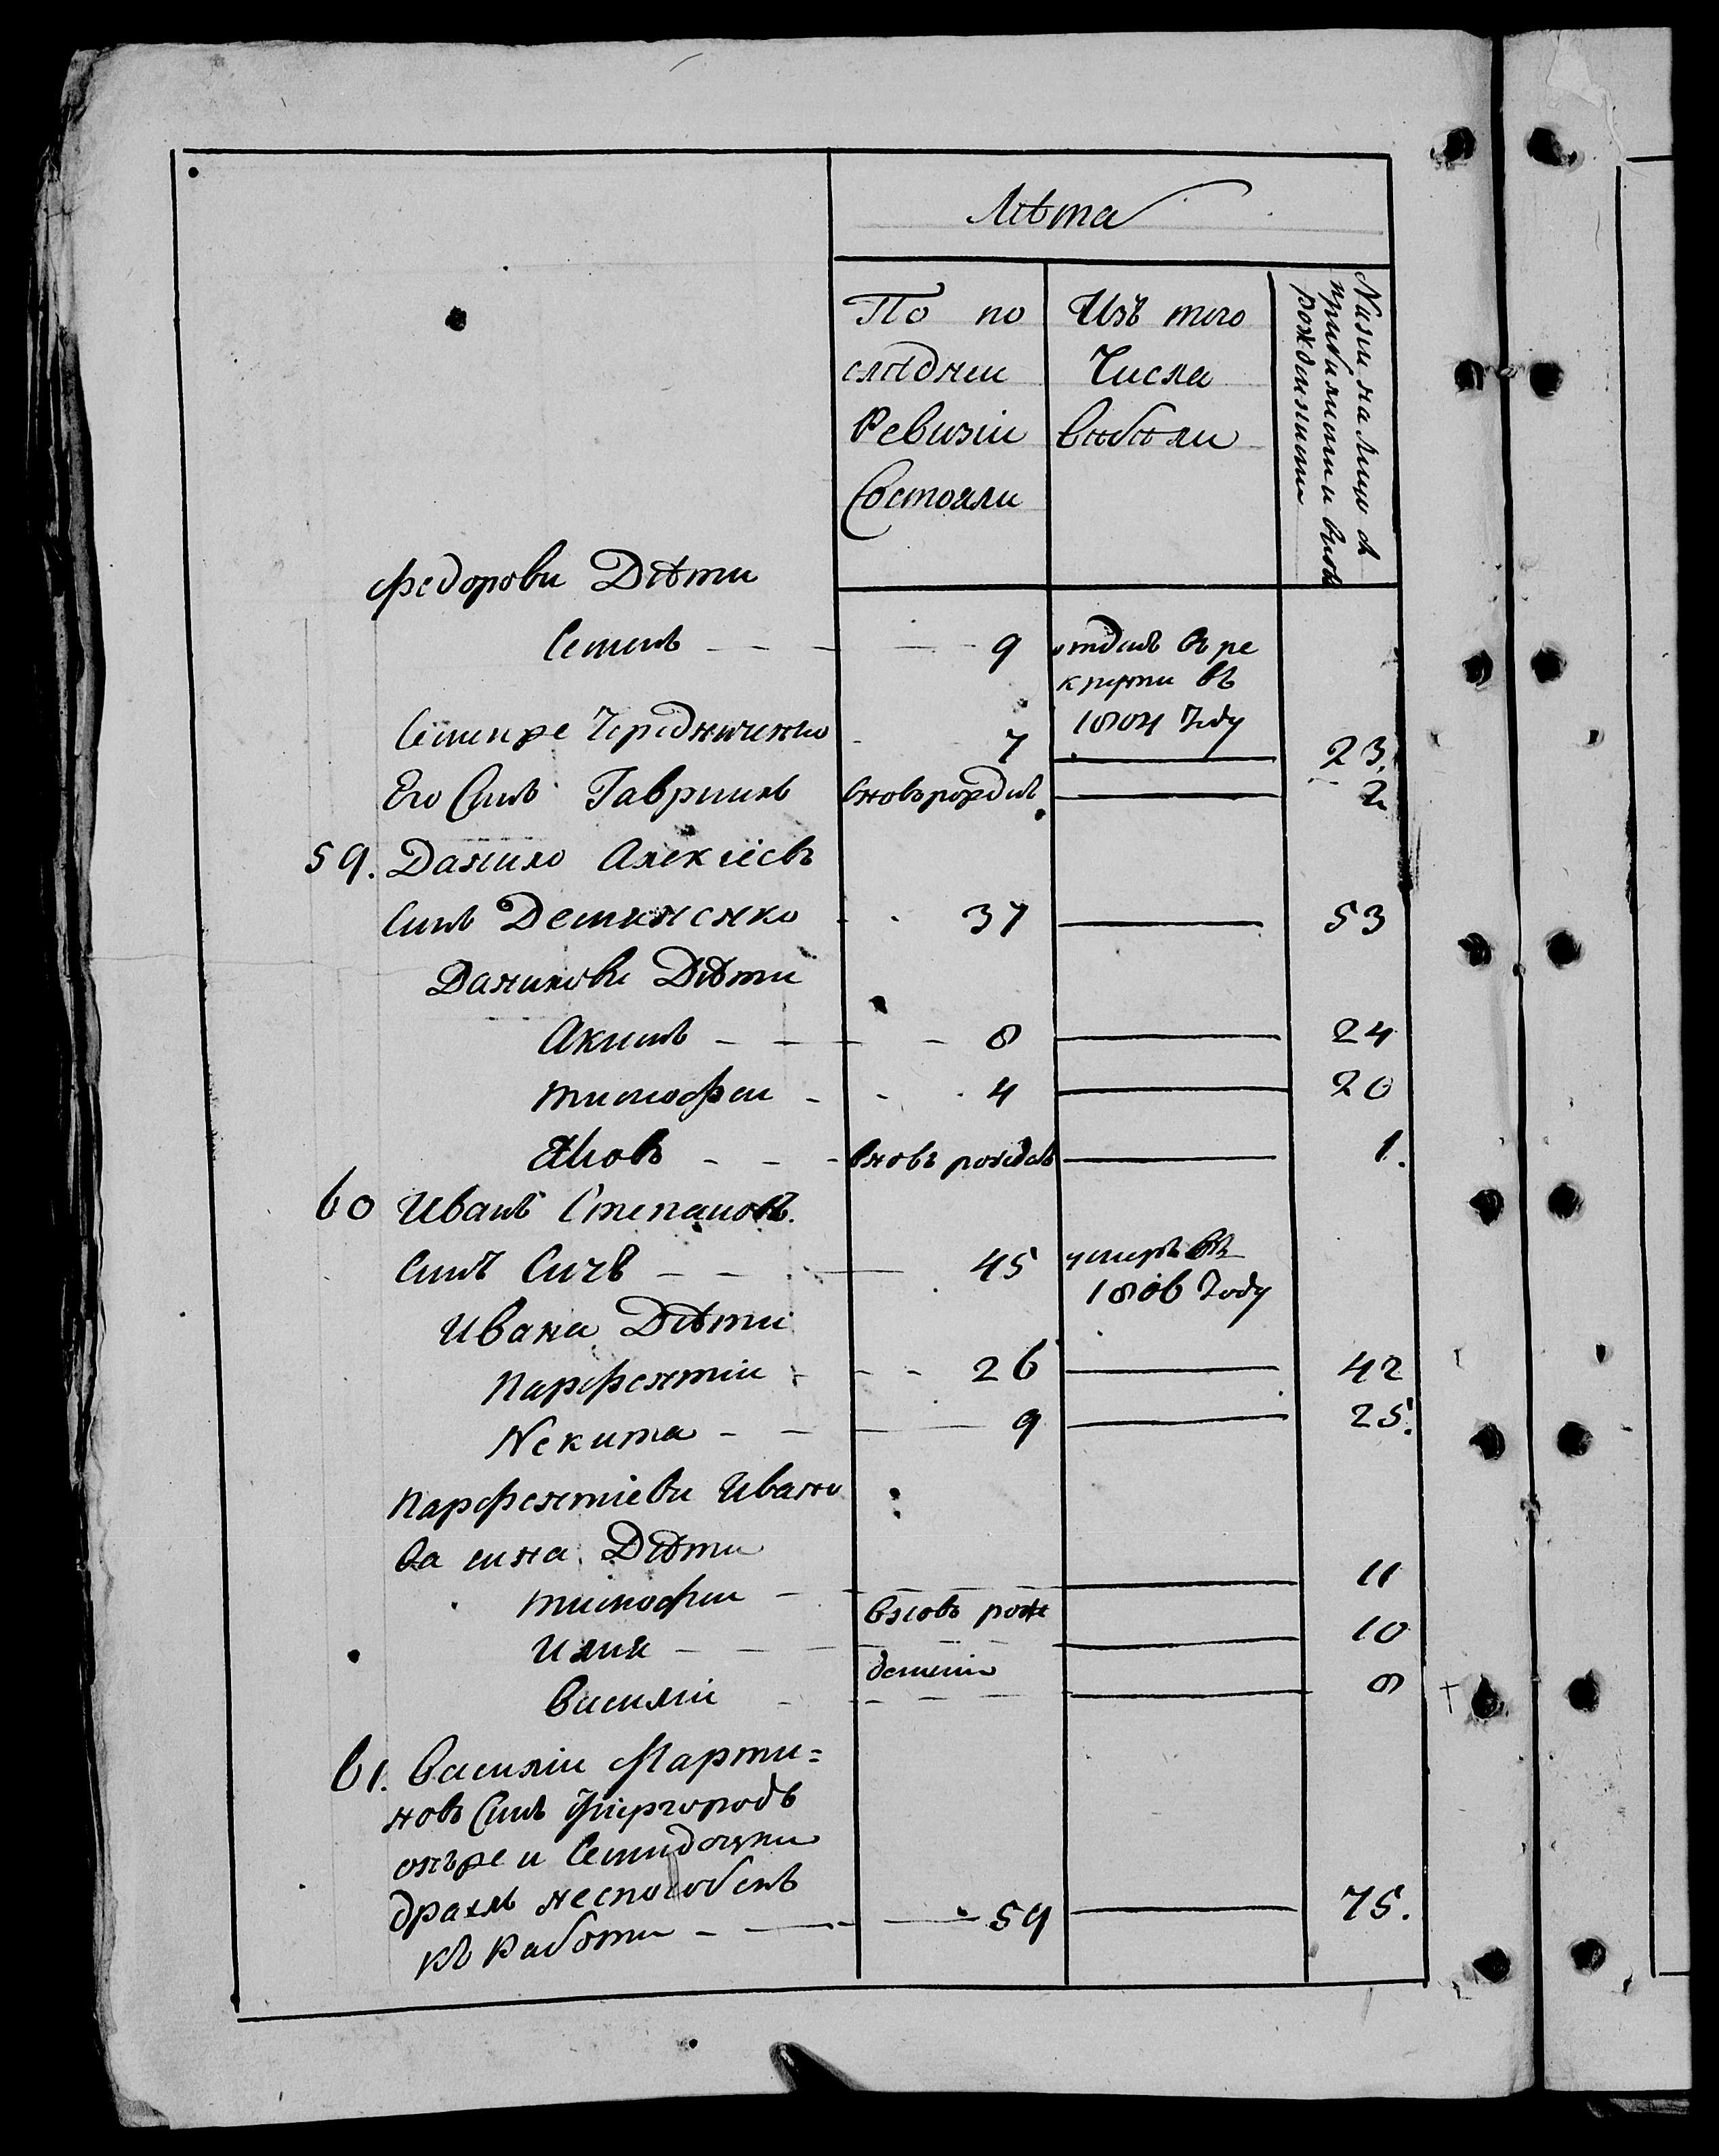 Лѣта
По по
слѣднеи
Ревизіи
Состояли
Изъ того
Числа
выбыли
Нине на лицо съ
прибилими и вновь
рожденними
Федорови Дѣти
Семенъ - - - 9 отданъ въ ре
крути въ
1804 Году
Семен же Чередниченко - 7 — 23.
Его Синъ Гавриилъ вновърожденъ — 2
59. Данило Алексіевъ
Синъ Деминенко - - 37 — 53
Данилови Дѣти
Акимъ - - - - 8 — 24
тимофеи - - - 4 — 20
Яковъ - - - вновь рожденъ — 1.
60 Иванъ Степановъ.
Синъ Сичъ - - - 45 умеръ въ
1806 Году
Ивана Дѣти
парфентіи - - - 26 — 42
Никита - - — 9 — 25.
парфентіеви Ивано
ва сина Дѣти
тимофеи - - - — 11
вновь рож
Илия - - - — 10
денніи
василіи - - - — 8
61. василіи Марти=
новъ Синъ
онъ же и
дряхлъ неспособенъ
къ Работи - — - — 59 — 75.